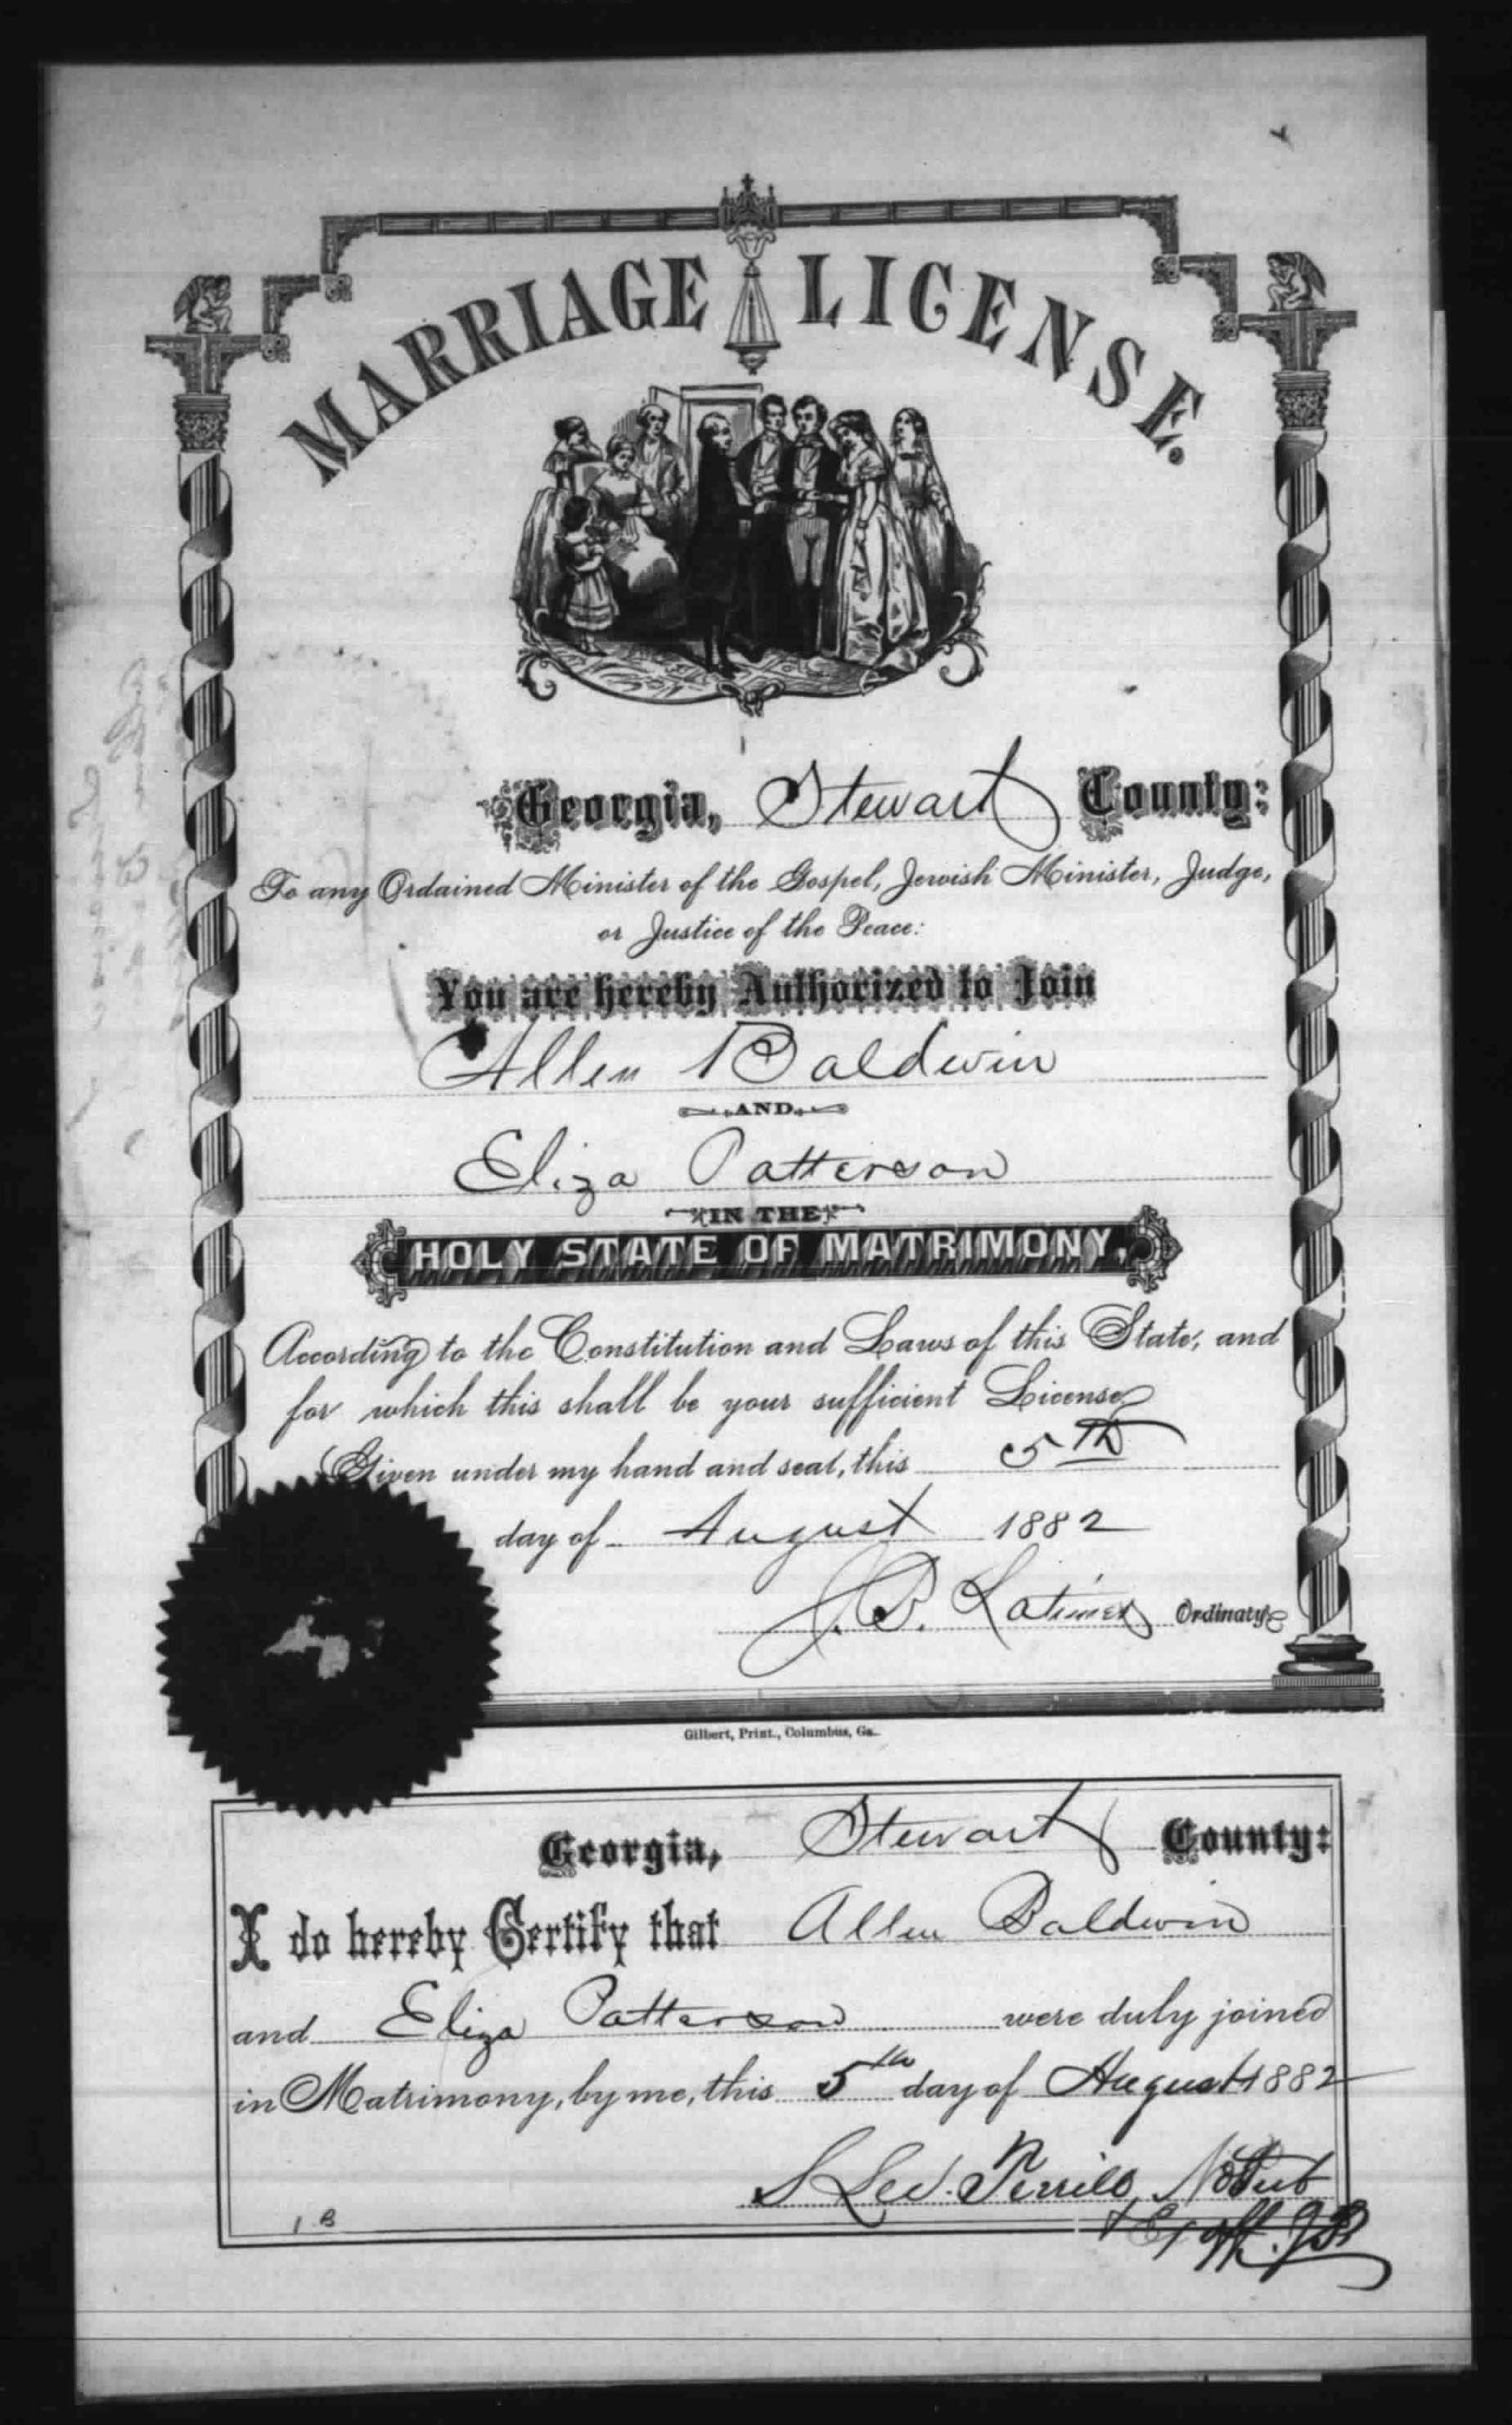 MARRIAGE LICENSE.
Georgia, Stewart County:
To any Ordained Minister of the Gospel, Jewish Minister, Judge,
or Justice of the Peace:
You are hereby Authorized to Join
Allen Baldwin
AND
Eliza Patterson
IN THE
HOLY STATE OF MATRIMONY,
According to the Constitution and Laws of this State, and
for which this shall be your sufficient License
Given under my hand and seal, this 5th
day of August 1882
J. B. Latimer Ordinary
Gilbert, Print., Columbus, Ga.
Georgia, Stewart County:
I do hereby Certify that Allen Baldwin
and Eliza Patterson were duly joined
in Matrimony, by me, this 5th day of August 1882
Not Pub
1 B